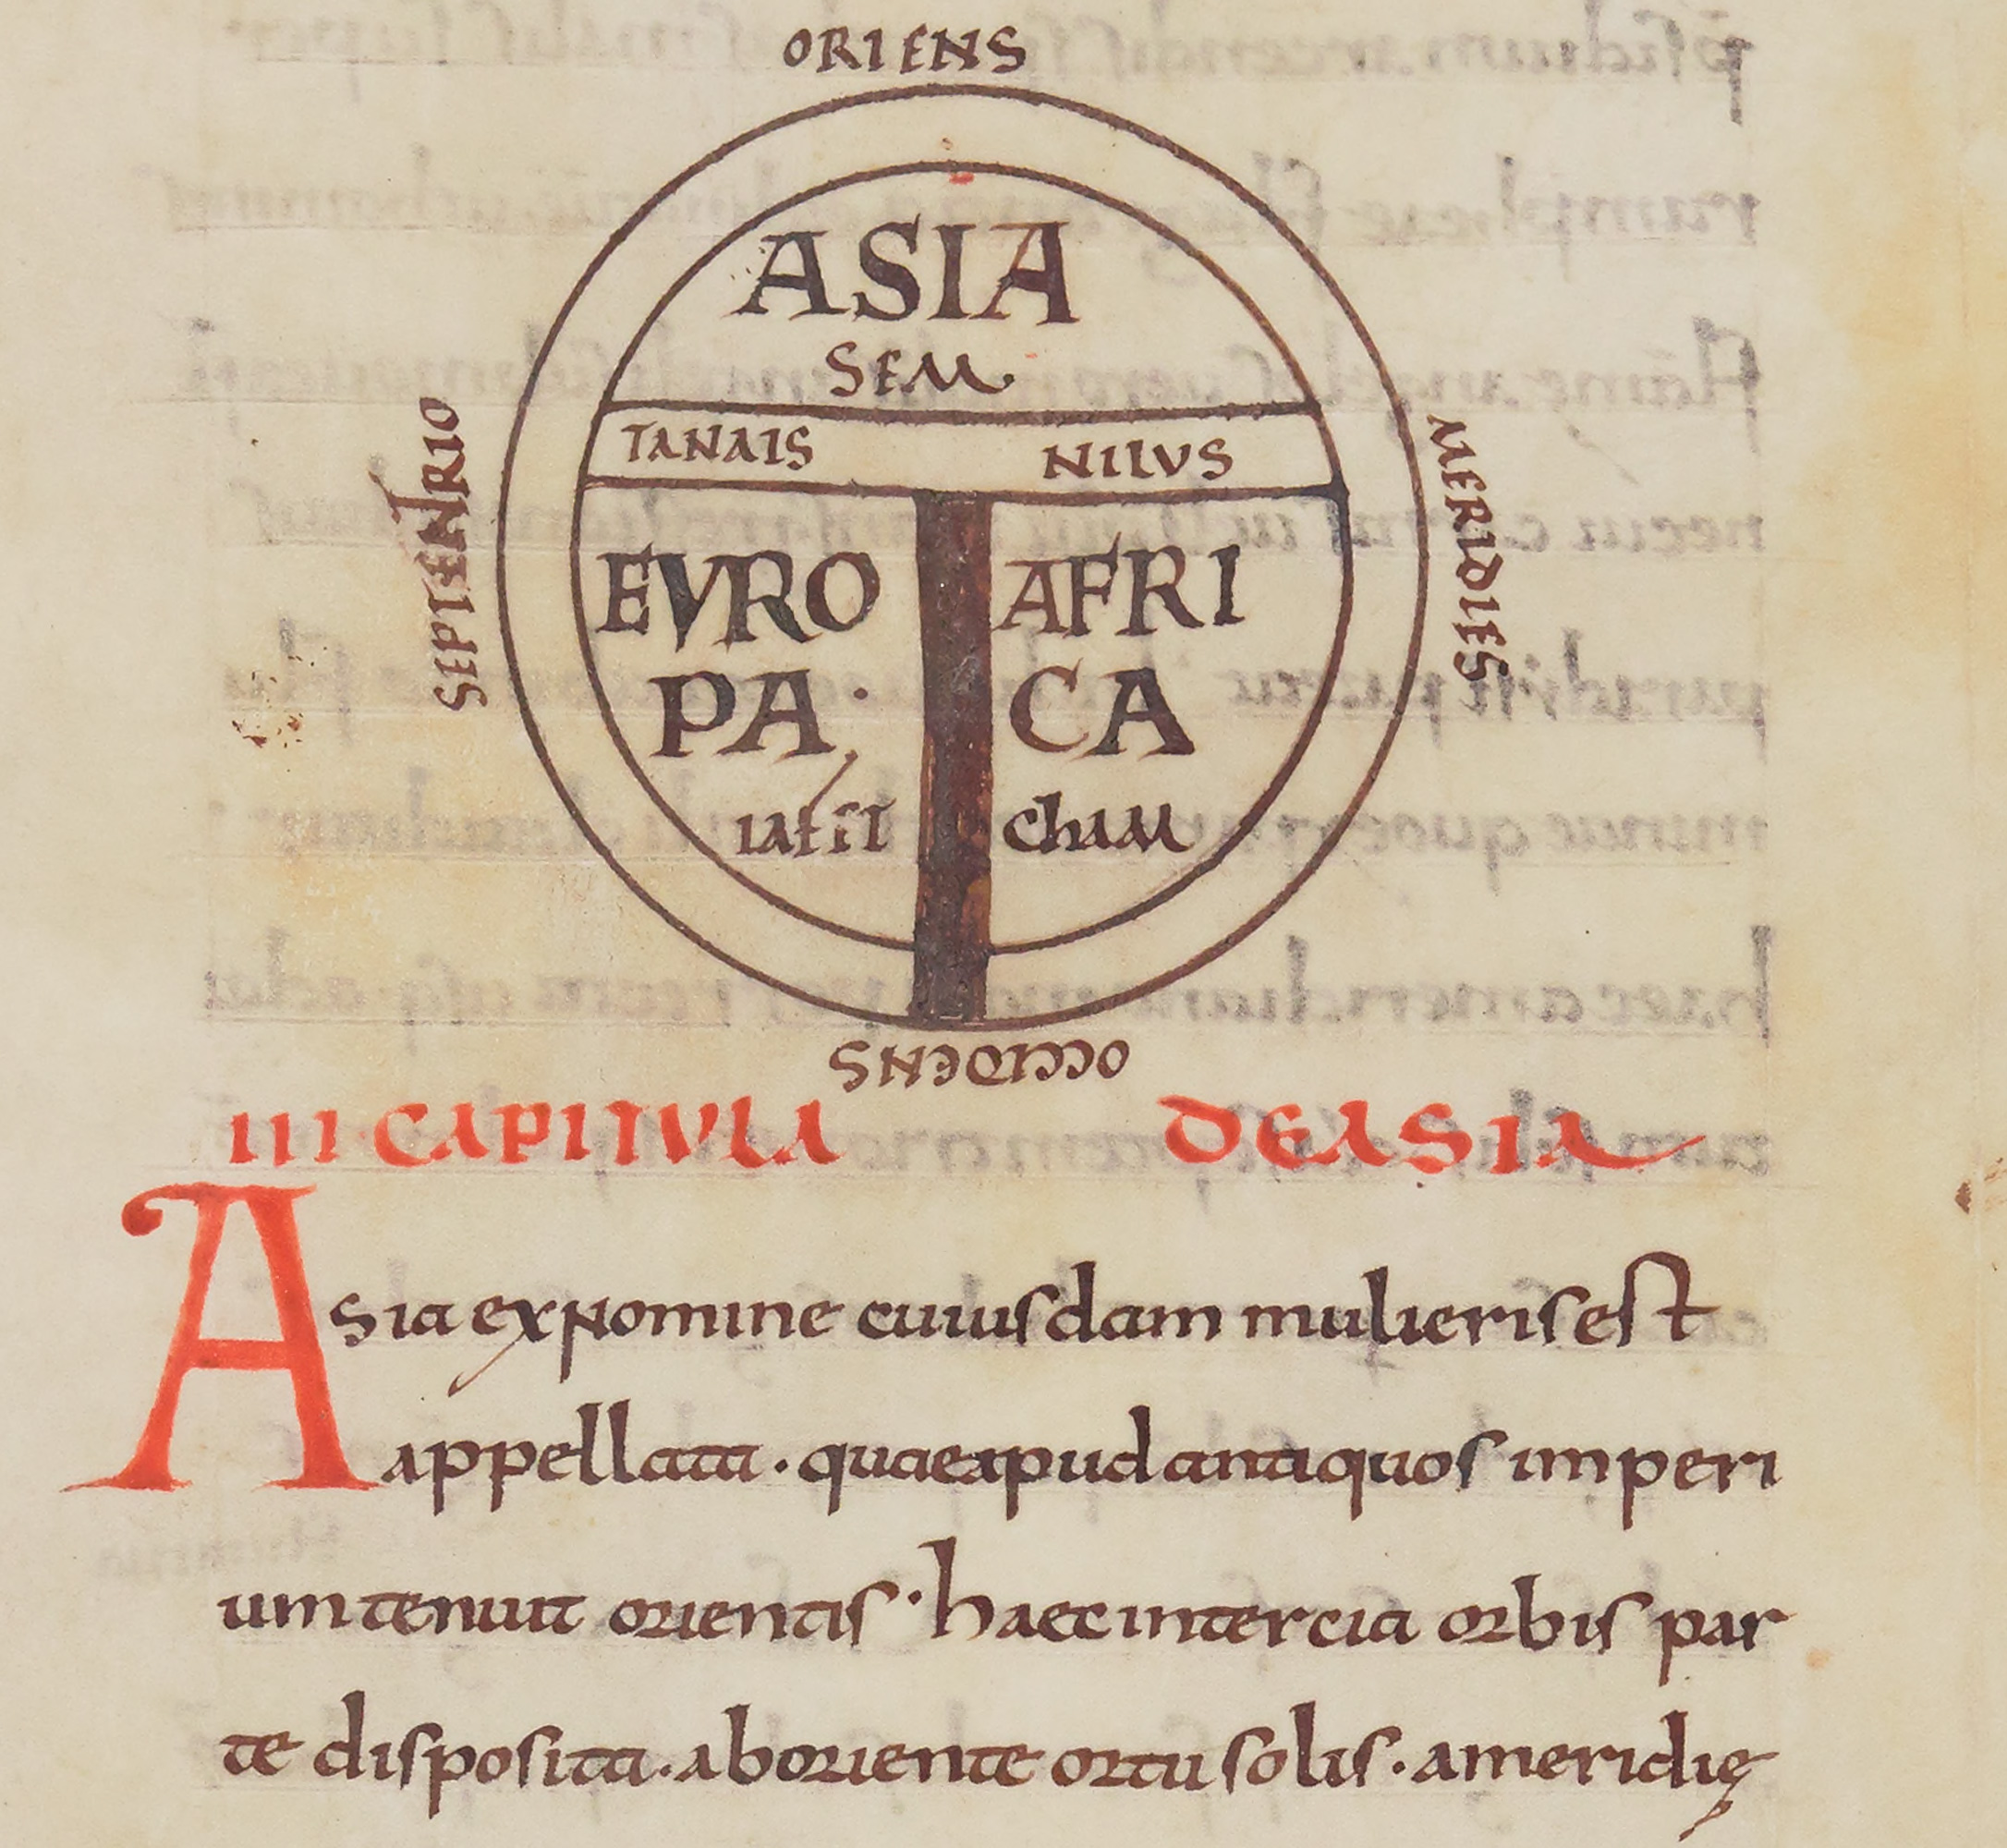 ORIENS
ASIA
SEM
TANAIS NILVS
SEPTENTRIO
MERIDIES
EVRO AFRI
PA· CA
IAFET CHAM
OCCIDENS
III CAPITVLA DE ASIA
Asia ex nomine cuiusdam mulieris est
appellata · quae apud antiquos imperi
um tenuit orientis · haec in tercia orbis par
te disposita · ab oriente ortu solis · a meridię